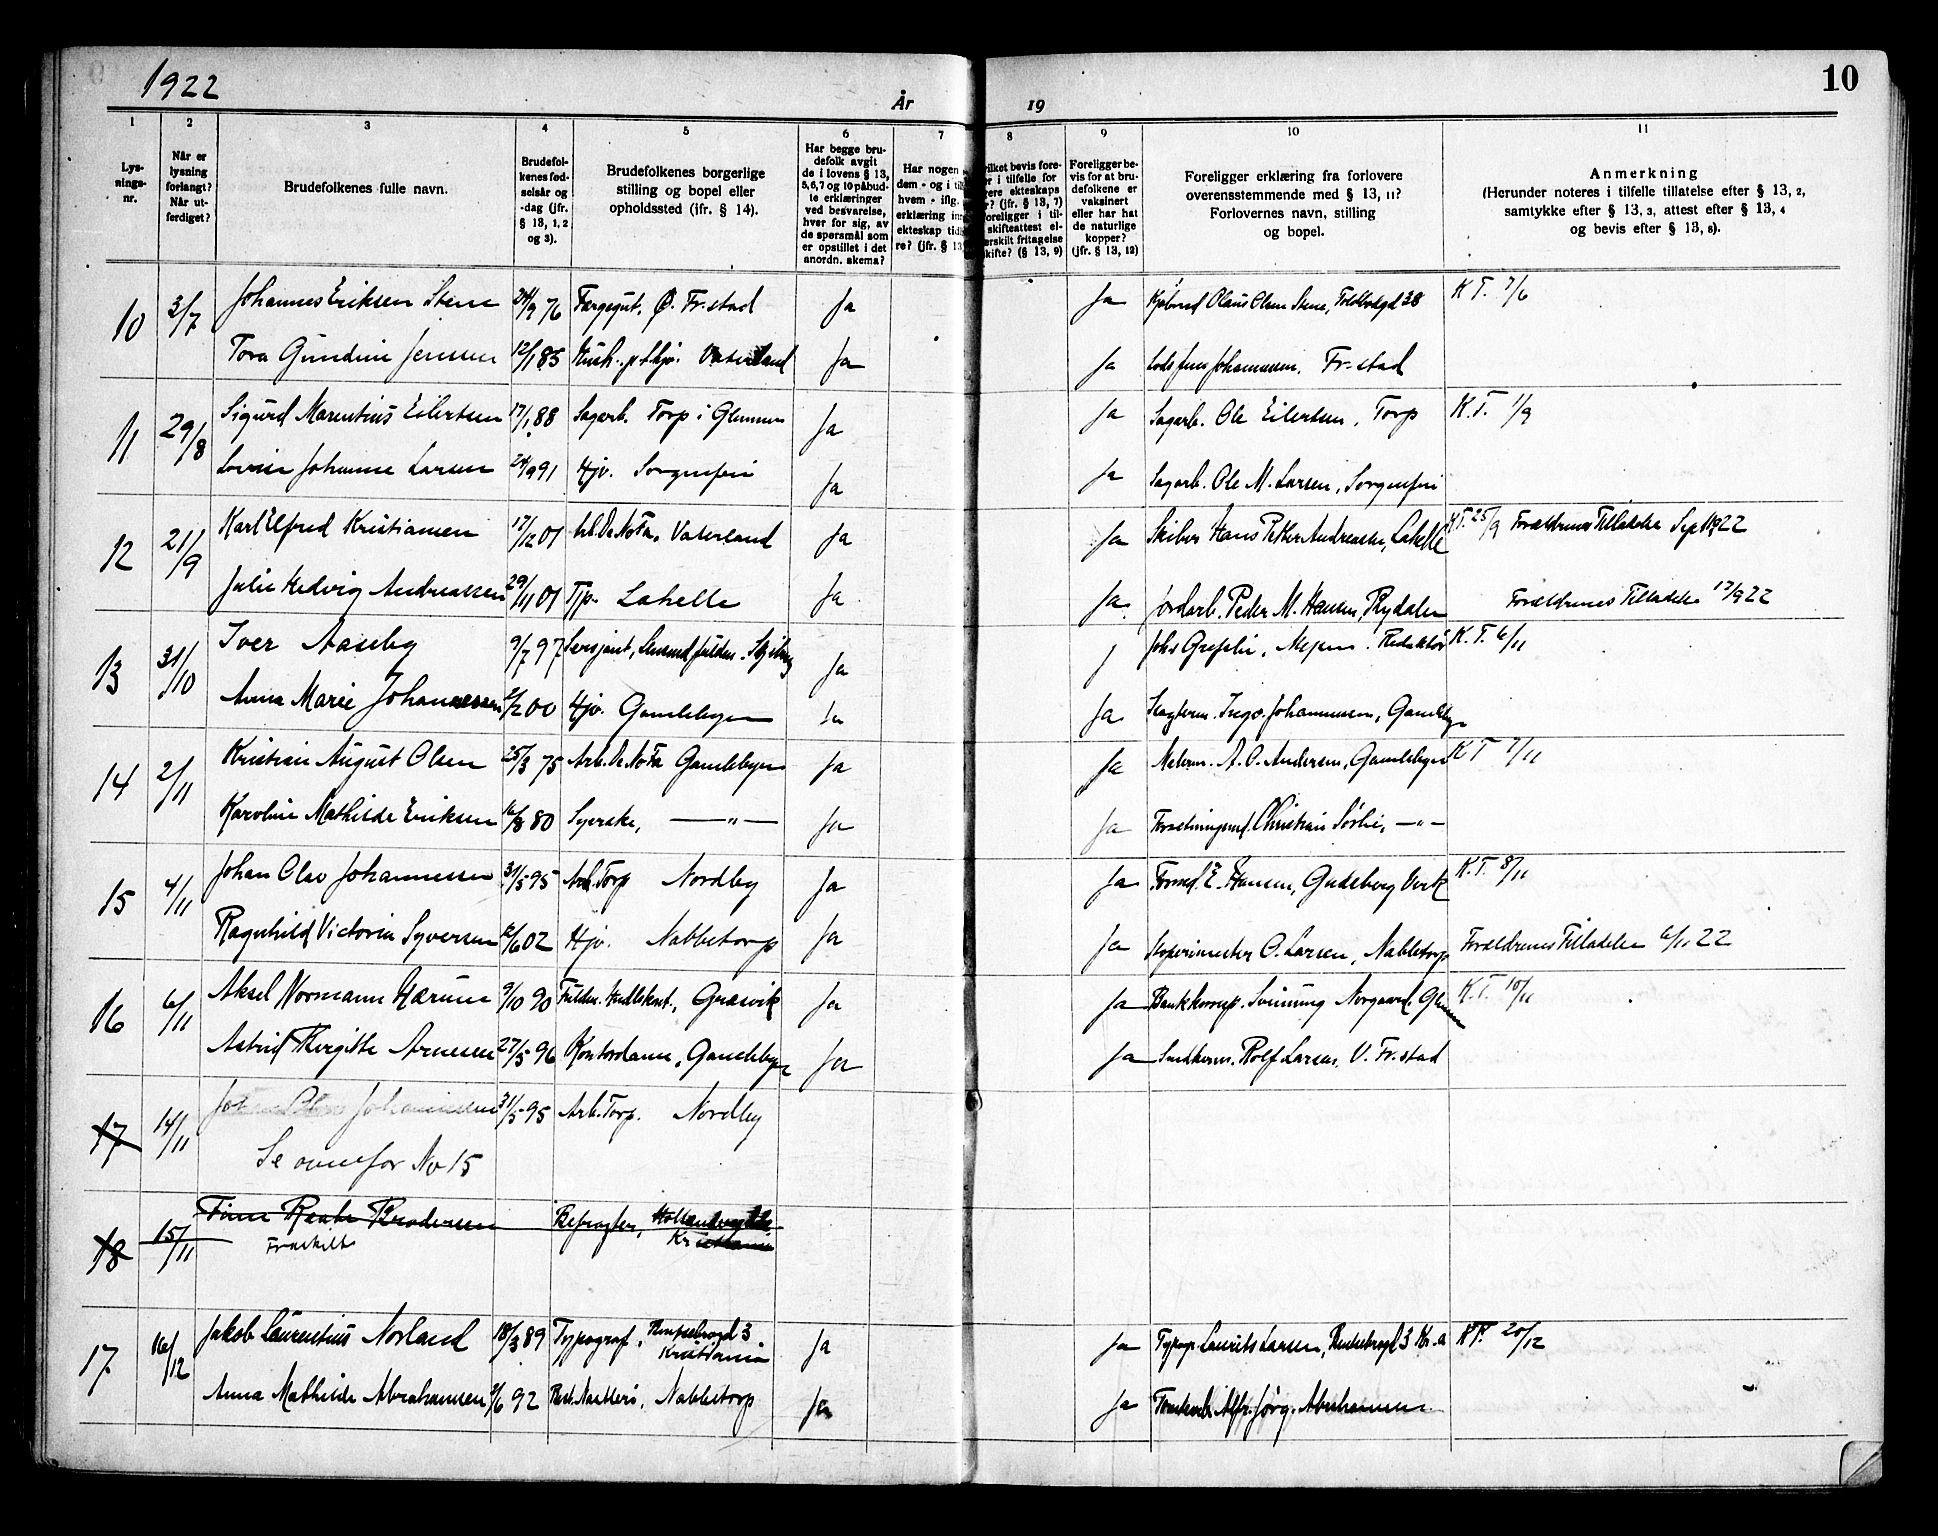 1922
År
19
10
1 2 3 4 5 6 7 8 9 10 11
Lys-
nings-
nr.
Når er
lysning
forlangt?
Når ut-
ferdiget?
Brudefolkenes fulle navn.
Brudefol-
kenes fød-
selsår og
-dag (jfr.
§ 13, 1, 2
og 3).
Brudefolkenes borgerlige
stilling og bopel eller
opholdssted (jfr. § 14).
Har begge bru-
defolk avgit
de i lovens § 13,
5, 6, 7 og 10 påbud-
te erklæringer
ved besvarelse,
hver for sig, av
de spørsmål som
er opstillet i det
anordn. skema?
Har nogen
dem - og i til
hvem - iflg.
erklæring inn
ekteskap tidl
re? (jfr. § 13
ilket bevis fore-
er i tilfelle for
ere ekteskaps
r? (jfr. § 13, 7)
oreligger i til-
skifteattest el-
erskilt fritagelse
kifte? (§ 13, 9)
Foreligger be-
vis for at bru-
defolkene er
vaksinert
eller har hat
de naturlige
kopper?
(jfr. § 13, 12)
Foreligger erklæring fra forlovere
overensstemmende med § 13, 11?
Forlovernes navn, stilling
og bopel.
Anmerkning
(Herunder noteres i tilfelle tillatelse efter § 13, 2,
samtykke efter § 13, 3, attest efter § 13, 4
og bevis efter § 13, 8).
10 3/7 Johannes Eriksen Stene 24/9 76 Færgegut, Ø. Fr.stad Ja Ja Olaus Olsen Stene, Toldbodgd 38 K.T. 7/6
Tora Gundine Jenssen 12/1 85 Vaterland Ja Ja Lods Jens Johannessen. Fr.stad
11 29/8 Sigurd Marentius Eilertsen 17/1 88 Sagarb. Torp i Glemmen Ja Ja Sagarb. Ole Eilertsen, Torp K.T. 1/9
Lovise Johanne Larsen 24/9 91 Hjv. Sorgenfri Ja Ja Sagarb. Ole M. Larsen, Sorgenfri
12 21/9 Karl Elfred Kristiansen 17/12 01 Arb. De No Fa, Vaterland Ja Ja Skiber Hans Petter Andreassen, Lahelle K.T. 25/9 Forældrenes Tilladelse Sept 1922
Julie Hedvig Andreassen 29/11 01 Tjp. Lahelle Ja Ja. Jordarb. Peder M. Hansen, Rydalen Forældrenes Tilladelse 17/9 22
13 31/10 Iver Aaseby 9/7 97 Sersjant, Ja J Johs Grefslie, Mysen. Redaktør K.T. 6/11
Anna Marie Johannessen 2/2 00 Hjv. Gamlebyen Ja Ja Ingv. Johannessen, Gamleby
14 2/11 Kristian August Olsen 25/3 75 Arb. De No Fa Gamlebyen Ja Ja Malerm. A. O. Andersen, Gamlebyen K T 7/11
Karoline Mathilde Eriksen 16/8 80 Syerske, —"— Ja Ja Christian Sørlie, —"—
15 4/11 Johan Olav Johannessen 31/5 95 Arb. Torp Nordby Ja Ja Formd. E. Hansen, Gudeberg Verk K.T. 8/11
Ragnhild Victoria Syversen 2/6 02 Hjv. Nabbetorp Ja Ja O. Larsen, Nabbetorp Forældrenes Tilladelse 6/11 22
16 6/11 Aksel Normann Hærum 9/10 90 Græsvik Ja Ja Svinning Norgaard, Glemmen K.T. 10/11
Astrid Birgitte Arnesen 27/5 96 Kontordame, Gamlebyen Ja Ja Rolf Larsen, V. Fr.stad
17 14/11 Johan Olav Johannessen 31/5 95 Arb. Torp. Nordby
Se ovenfor No 15
18 15/11 Brodersen Befragter,
Fraskilt Kristiania
17 16/12 Jakob Laurentius Norland 18/3 89 Typograf, 3 Kristiania Ja Ja Typogr. Laurits Larsen, 3 Kr.a K.T. 20/12
Anna Mathilde Abrahamsen 2/6 92 Nabbetorp Ja Ja Alfr. Jørg. Abrahamsen